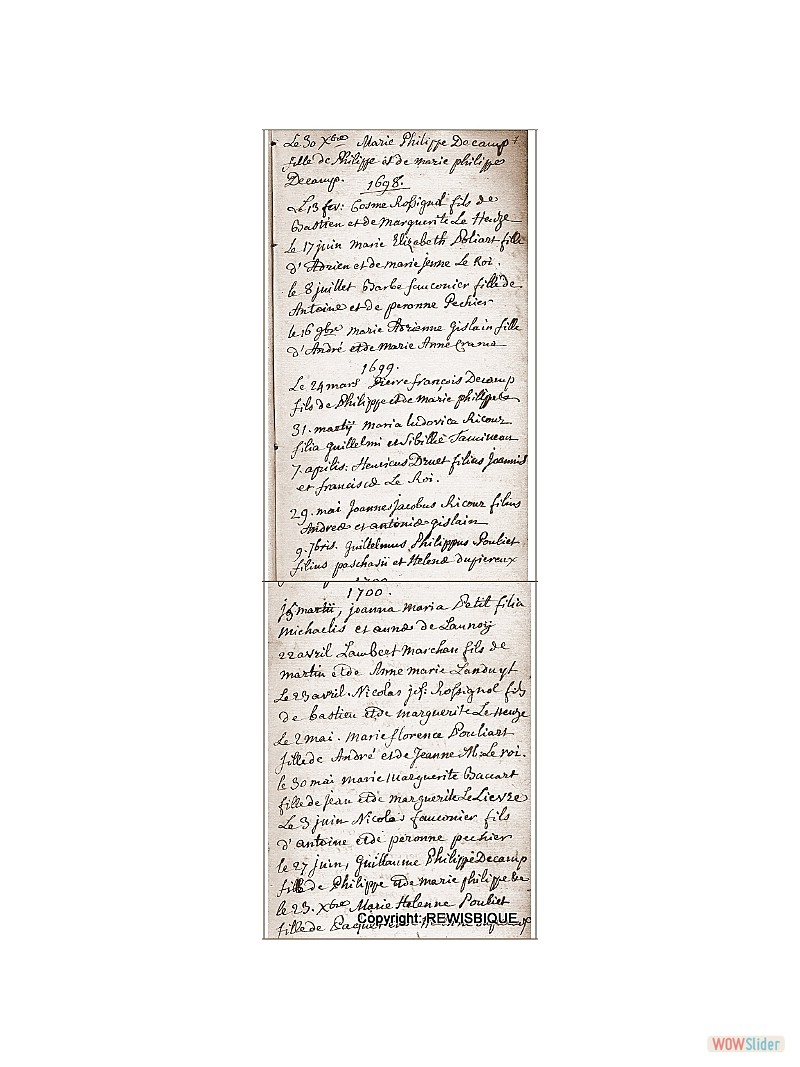 Le 30 Xbre Marie Philippe Decamp
fille de Philippe et de marie philippe
Decamp.
1698.
Le 13 fev: Cosme Rossignol fils de
Bastien et de marguerite Le Heuze
Le 17 juin Marie Elizabeth Poliart fille
d'Adrien et de marie jenne Le Roi.
le 8 juillet Barbe fauconier fille de
Antoine et de peronne Pechier
le 16 9bre marie Adrienne Gislain fille
d'André et de Marie Anne
1699.
Le 24 mars Pierre françois Decamp
fils de Philippe et de marie philippe
31. martij maria ludovica Ricour
filia guillelmi et Sibillæ
7. aprilis. Henricus Druet filius Joannis
et franciscæ Le Roi.
29. mai Joannes jacobus Ricour filius
Andreæ et antoniæ gislain
9. 7bris. guillelmus Philippus Pouliet
filius paschasii et Helenæ dupiereux
1700.
1700.
martii, joanna maria Petit filia
michaelis et annæ de Launoij
22 avril Lambert Marchan fils de
martin et de Anne marie Landuyt
Le 23 avril. Nicolas jos: Rossignol fils
de bastien et de marguerite Le Heuze
Le 2 mai. Marie florence Pouliart
fille de André et de Jeanne M. Le roi.
le 30 mai marie Marguerite Baccart
fille de jean et de marguerite Le Lievre
Le 3 juin Nicolas fauconier fils
d'antoine et de peronne pechier
le 27 juin, Guillaume Philippe Decamp
de Philippe et de marie philippe
le 23. Xbre Marie Helenne Pouliet
fille de
Copyright: REWISBIQUE
WOWSlider